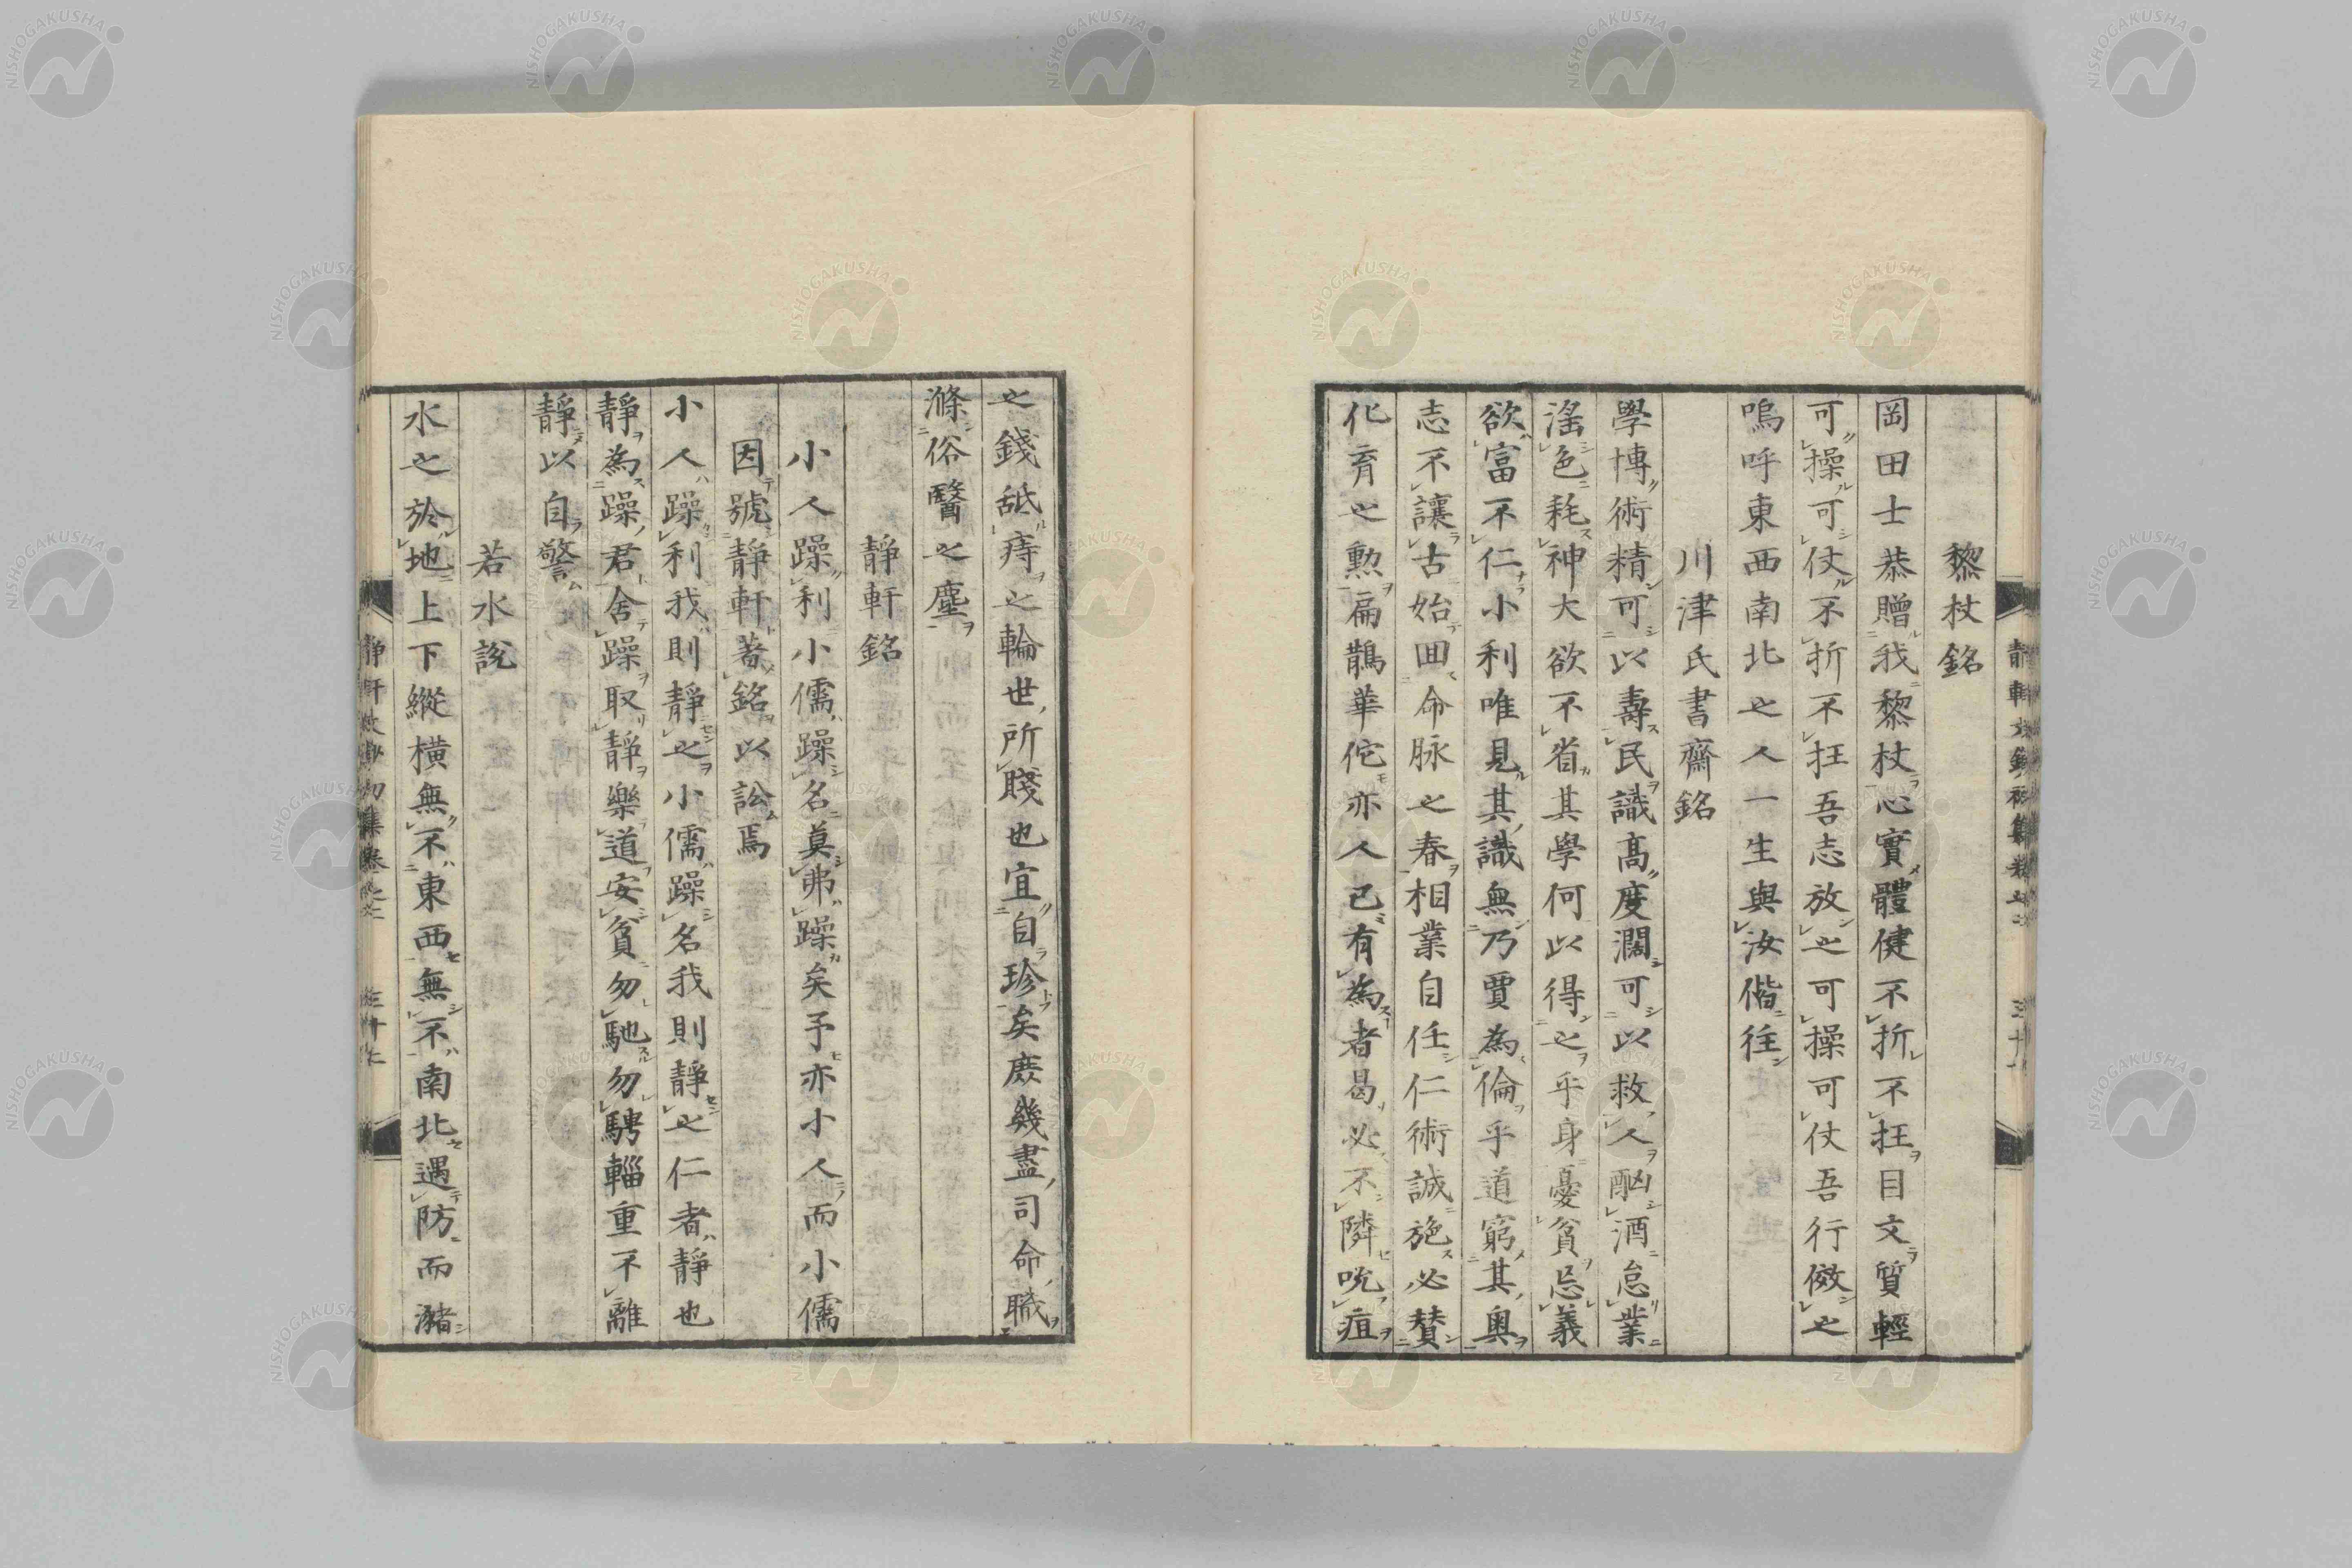 黎杖銘
岡田士恭贈我黎杖心實體健不折不抂目文質輕
可操可仗不折不抂吾志放之可操可仗吾行傚之
嗚呼東西南北之人一生與汝偕往
川津氏書齋銘
學博術精可以壽民識高度濶可以救人酗酒怠業
滛色耗神大欲不省其學何以得之乎身憂貧忘義
欲富不仁小利唯見其識無乃賈為倫乎道窮其奥
志不讓古始囬命脉之春相業自任仁術誠施必賛
化育之勲扁鵲華佗亦人已有為者曷必不隣吮疽
之錢舐痔之輪世所賤也宜自珍矣庶幾盡司命職
滌俗醫之塵
靜軒銘
小人躁利小儒躁名莫弗躁矣予亦小人而小儒
因號靜軒著銘以訟焉
小人躁利我則靜之小儒躁名我則靜之仁者靜也
靜為躁君舍躁取靜樂道安貧勿馳勿騁輜重不離
靜以自警
若水説
水之於地上下縱横無不東西無不南北遇防而瀦